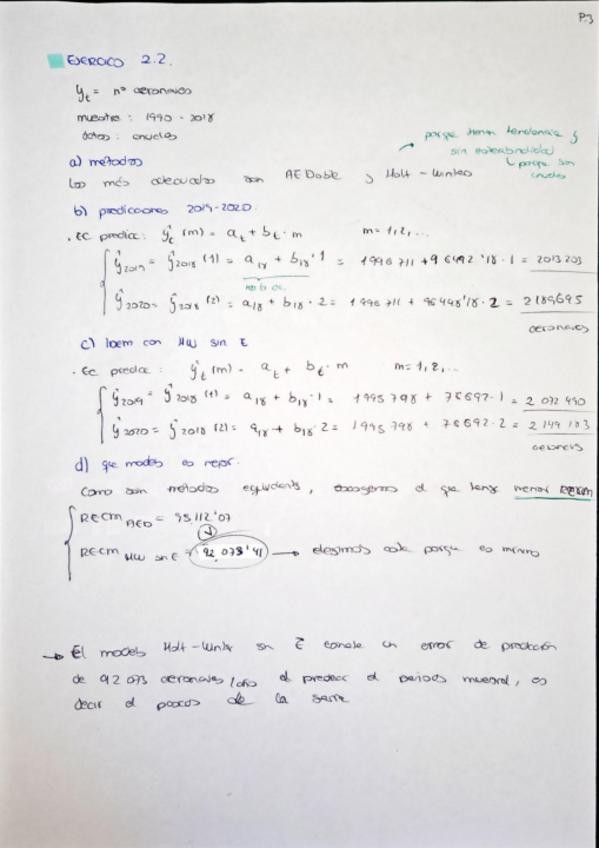 P.3
EJERCICIO 2.2.
yt = nº aeronaves
muestra : 1990 - 2018
datos : anuales
porque tienen tendencia y
sin estacionalidad
porque son
anuales
a) metodos
los más adecuados son AEDoble y Holt - Winters
b) predicciones 2019-2020:
· Ec predicc: ŷt (m) = at + bt · m m= 1,2, ...
ŷ2019 = ŷ2018 (1) = a18 + b18 · 1 = 1996 711 + 96492'18 · 1 = 2093 203
ŷ2020 = ŷ2018 (2) = a18 + b18 · 2 = 1996 711 + 96448'18 · 2 = 2189695
aeronaves
c) idem con HW sin E
· Ec predicc : ŷt (m) = at + bt · m m= 1,2,...
ŷ2019 = ŷ2018 (1) = a18 + b18 · 1 = 1995 798 + 76692 · 1 = 2 072 490
ŷ2020 = ŷ2018 (2) = a18 + b18 · 2 = 1995 798 + 76692 · 2 = 2 149 183
aeronaves
d) que modelo es mejor.
Como son metodos equivalents, escogemos el que tenga menor RECM
RECM AED = 95.112'07
RECM HW sin E = 92 073'41 → elegimos este porque es mínimo
→ El modelo Holt-Winter sin E comete un error de predicción
de 92 073 aeronaves/año al predecir el periodo muestral, es
decir el pasado de la serie